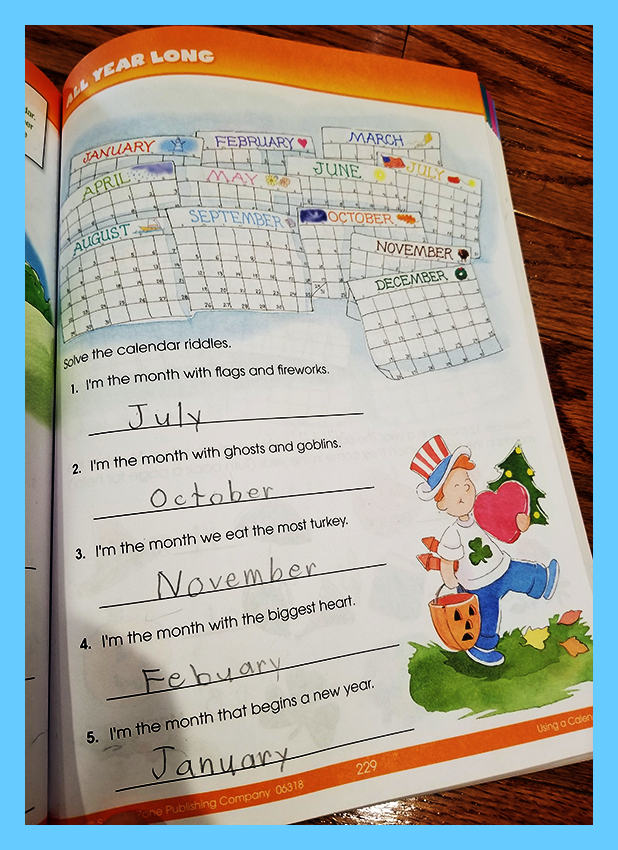 ALL YEAR LONG
JANUARY
FEBRUARY
MARCH
APRIL
MAY
JUNE
JULY
AUGUST
SEPTEMBER
OCTOBER
NOVEMBER
DECEMBER
Solve the calendar riddles.
1. I'm the month with flags and fireworks.
July
2. I'm the month with ghosts and goblins.
October
3. I'm the month we eat the most turkey.
November
4. I'm the month with the biggest heart.
Febuary
5. I'm the month that begins a new year.
January
Publishing Company 06318
229
Using a Calen